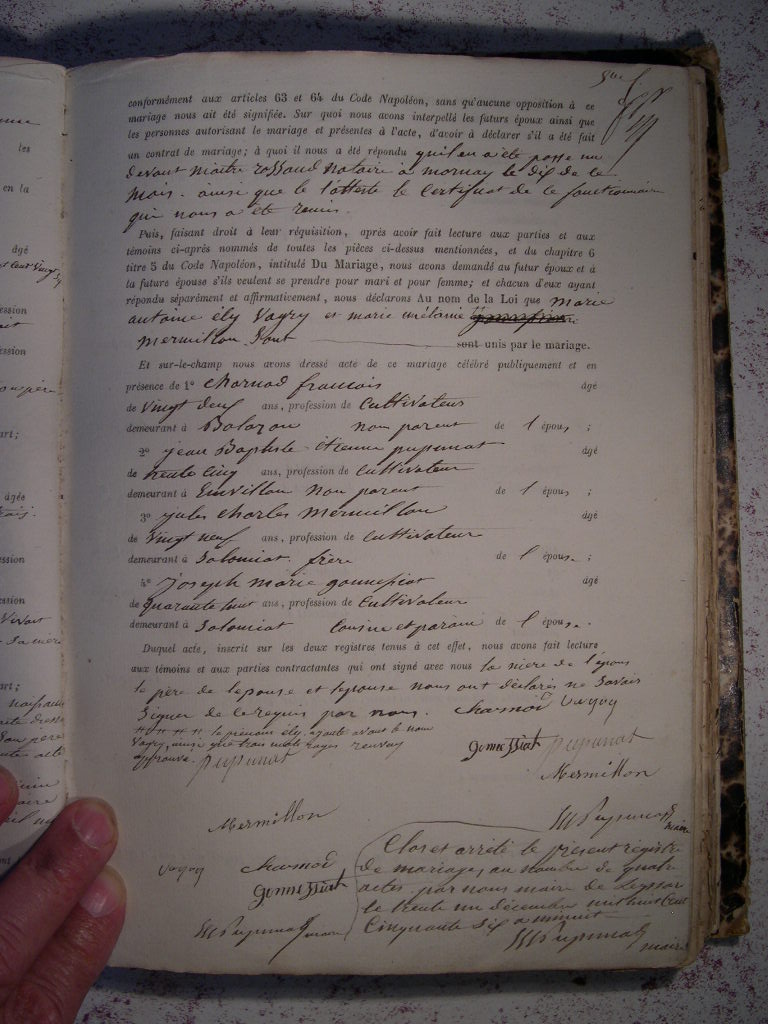 conformément aux articles 63 et 64 du Code Napoléon, sans qu'aucune opposition à ce
mariage nous ait été signifiée. Sur quoi nous avons interpellé les futurs époux ainsi que
les personnes autorisant le mariage et présentes à l'acte, d'avoir à déclarer s'il a été fait
un contrat de mariage; à quoi il nous a été répondu qu'il en a été passé un
devant maître rossand notaire a mornay le dix de ce
mois. ainsi que le l'atteste le certificat de ce fonctionnaire
qui nous a été remis.
Puis, faisant droit à leur réquisition, après avoir fait lecture aux parties et aux
témoins ci-après nommés de toutes les pièces ci-dessus mentionnées, et du chapitre 6
titre 5 du Code Napoléon, intitulé Du Mariage, nous avons demandé au futur époux et à
la future épouse s'ils veulent se prendre pour mari et pour femme; et chacun d'eux ayant
répondu séparément et affirmativement, nous déclarons Au nom de la Loi que marie
antoine ély Vagry et marie mélanie
mermillon Sont sont unis par le mariage.
Et sur-le-champ nous avons dressé acte de ce mariage célébré publiquement et en
présence de 1° charnod francois âgé
de Vingt deux ans, profession de Cultivateur
demeurant à Bolozon non parent de l'époux ;
2° jean Baptiste étienne pupunat âgé
de trente cinq ans, profession de Cultivateur
demeurant à Emvillon non parent de l'époux ;
3° jules charles mermillon âgé
de Vingt neuf ans, profession de Cultivateur
demeurant à Solomiat. frère de l'épouse ;
4° joseph marie gonnessiat âgé
de quarante huit ans, profession de Cultivateur
demeurant à Solomiat Cousin et parain de l'épouse.
Duquel acte, inscrit sur les deux registres tenus à cet effet, nous avons fait lecture
aux témoins et aux parties contractantes qui ont signé avec nous la mère de l'époux
le père de lepouse et lepouse nous ont déclarés ne Savoir
Signer de ce requis par nous. charnod Vagry
le prénom ély. ajouté avant le nom
Vagry, ainsi que trois mots rayés
approuvé. pupunat gonnessiat pupunat
Mermillon
Mermillon Pupunat maire
Vagry charnod
gonnessiat
Pupunat maire
Clos et arrêté le présent registre
de mariages au nombre de quatre
actes. par nous maire de Leyssard
le trente un décembre mil huit cent
Cinquante six a minuit
Pupunat maire